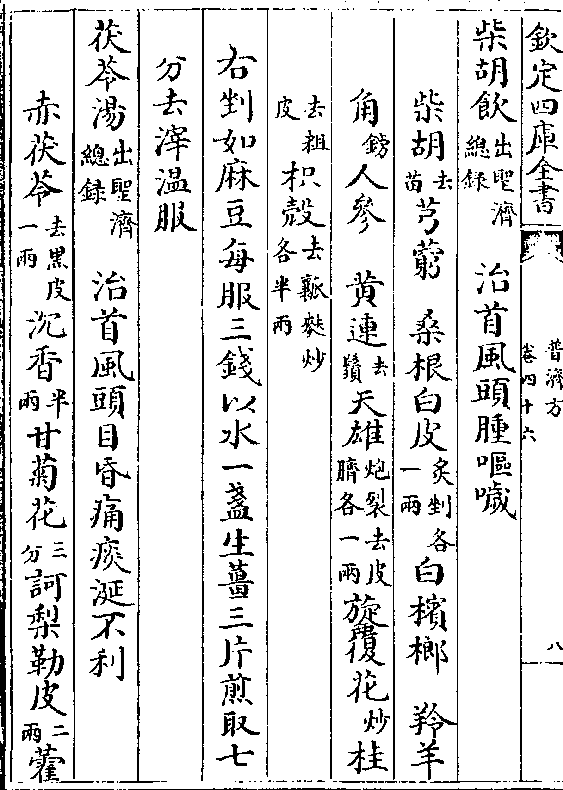 欽定四庫全書
普濟方
卷四十六
八
柴胡飲出聖濟總録 治首風頭腫嘔噦
柴胡去苗 芎藭 桑根白皮炙剉各一兩 白檳榔 羚羊
角鎊 人參 黄連去鬚 天雄炮裂去皮臍各一兩 旋覆花炒 桂
去粗皮 枳殼去瓤麩炒各半兩
右剉如麻豆每服三錢以水一盞生薑三片煎取七
分去滓温服
茯苓湯出聖濟總録 治首風頭目昏痛痰涎不利
赤茯苓去黒皮一兩 沉香半兩 甘菊花三分 訶梨勒皮二兩 藿